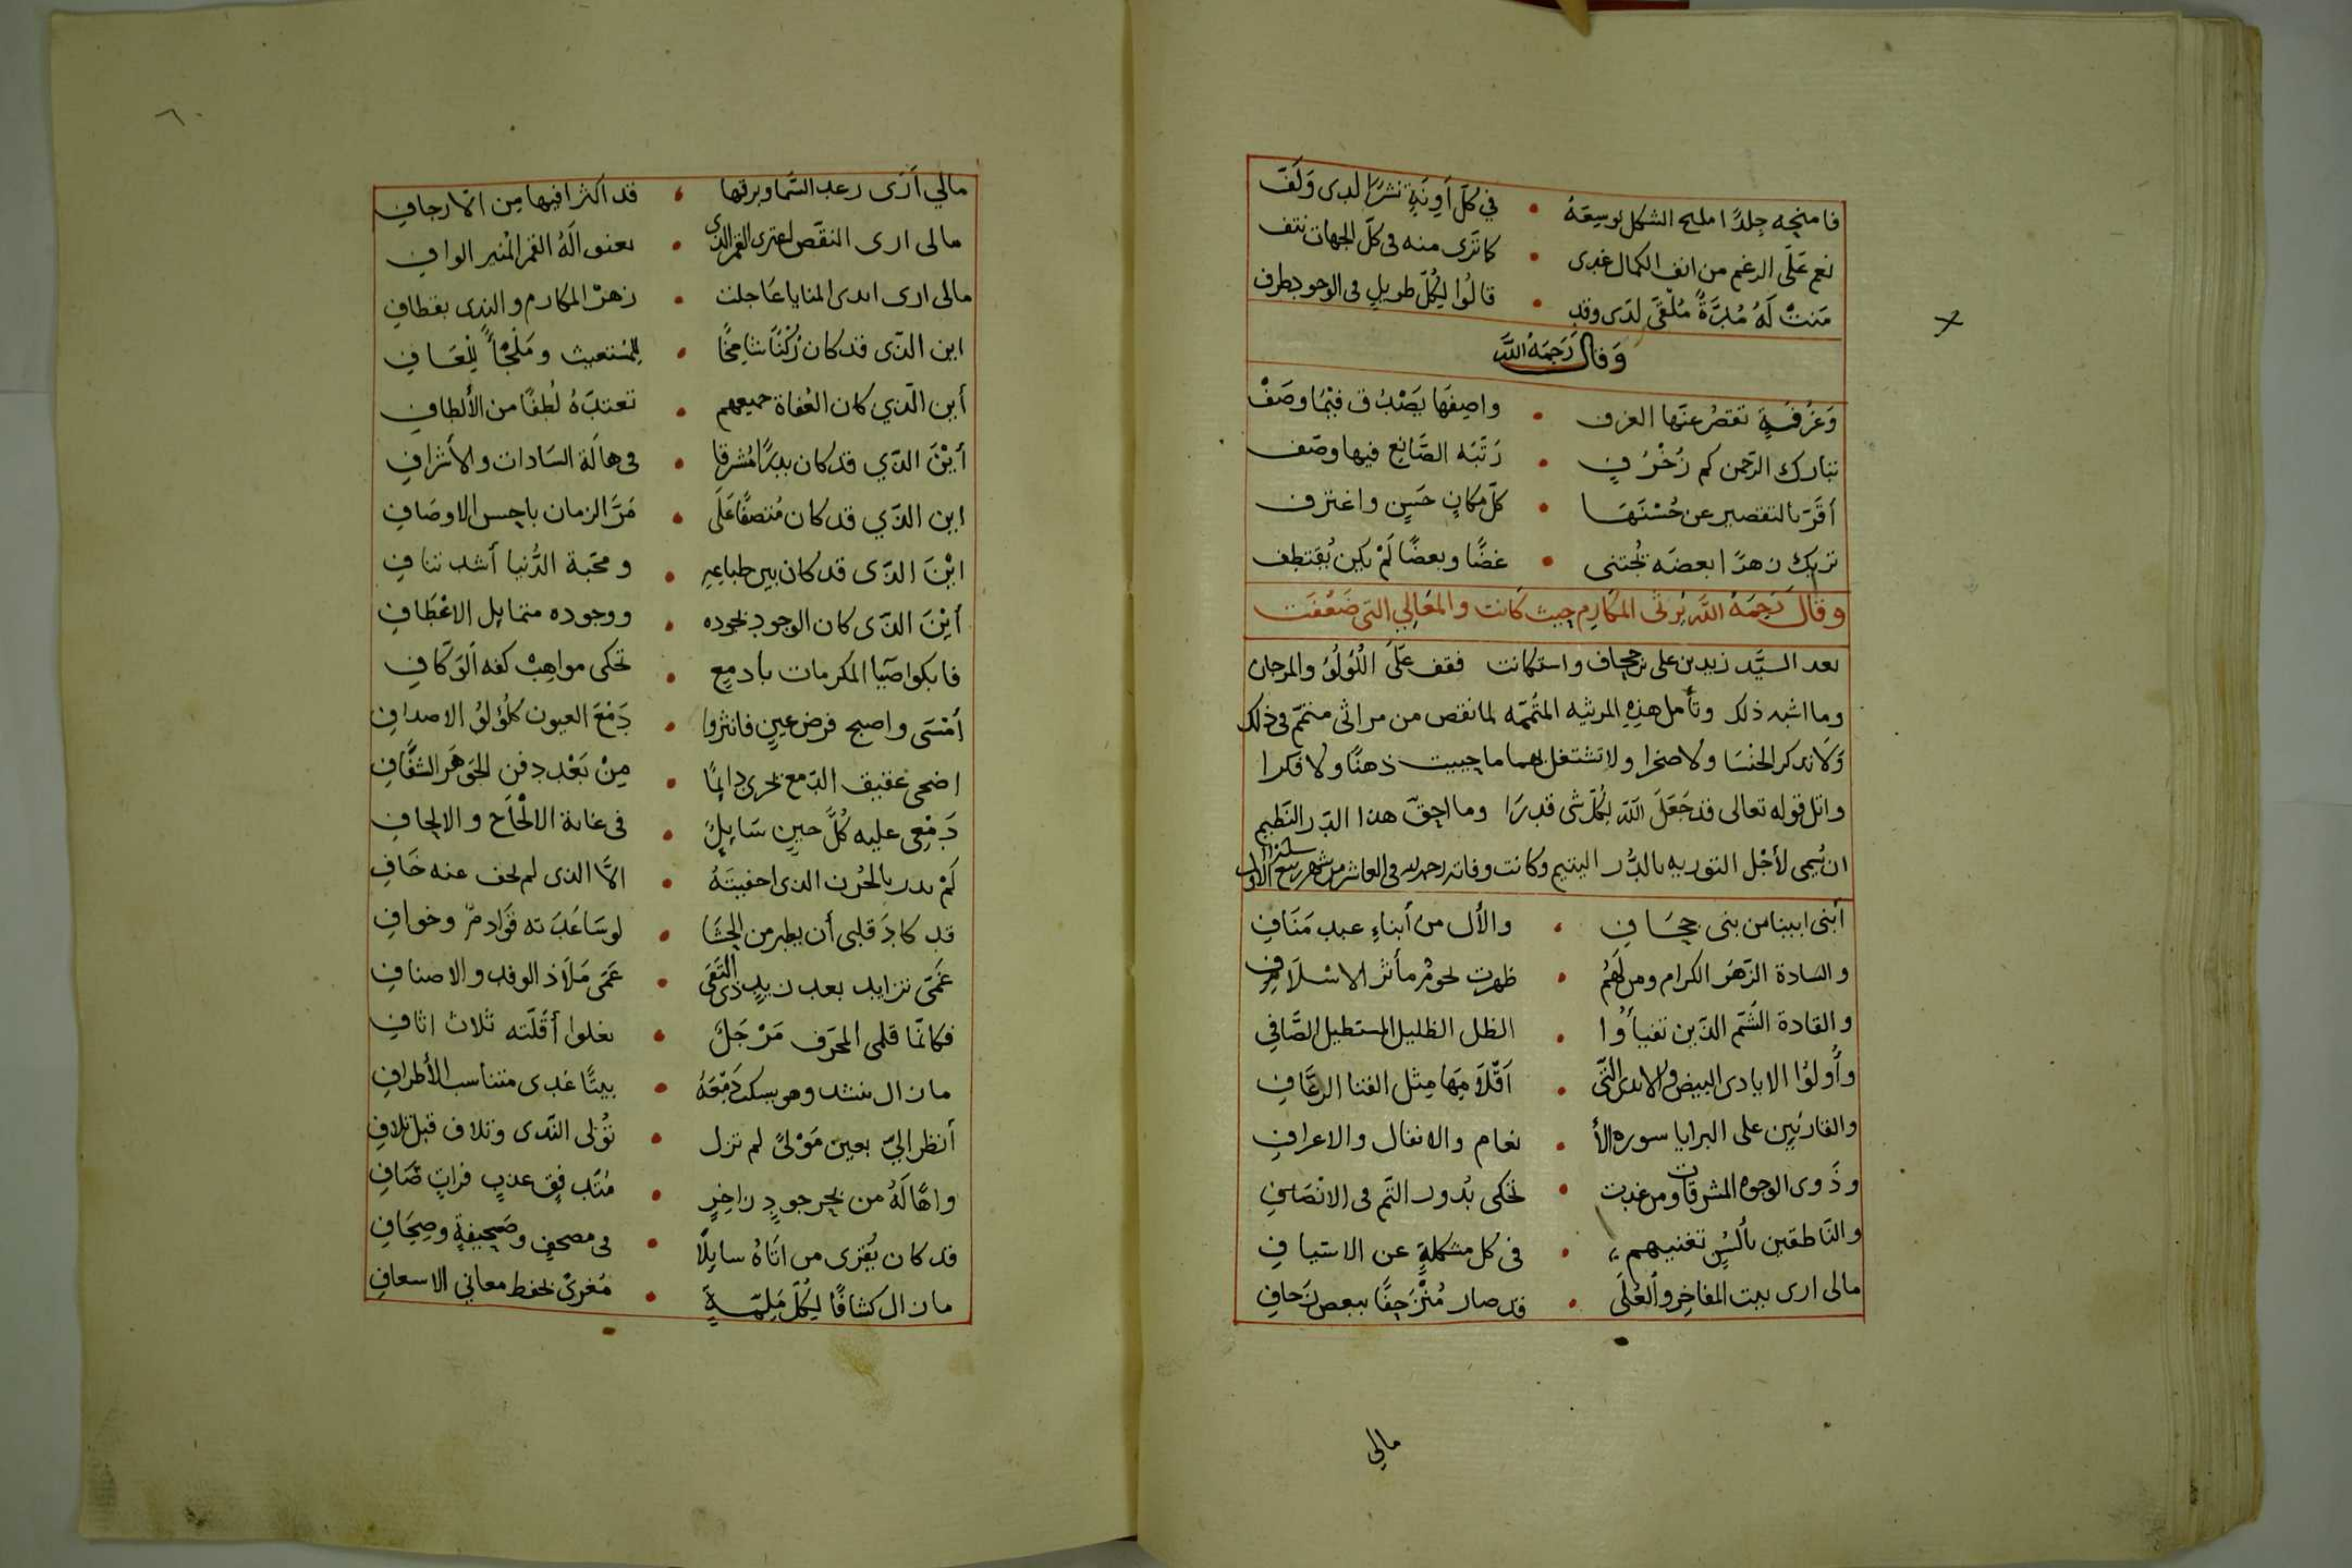 فامنحه جلدًا مليح الشكل لوسعهُ • في كلّ أونةٍ نشرًا لدى وَلَفّ
نعم عَلَى الرغم من انف الكمال غدى • كما ترى منه فى كلّ الجهات نتف
مَنتْ لَهُ مُدَّةٌ مُلْقىً لدَى وقد • قالُوا لِكُلّ طويلٍ فى الوجود طرف
وَقال رَحِمَهُ اللَّه
وَغُرْفَةٍ تقصُر عنّها الغرف • واصِفهَا يَصْدُق فيْمَا وصَفْ
تبارك الرّحمن كم زُخْرُفٍ • رَتّبَه الصَّانع فيها وصَف
أقَرّ بالتقصير عن حُسْنَهَا • كلّ مكانٍ حَسَنٍ واعترف
تريك زهرًا بعضَه تُجتنى • غضًّا وبعضًا لَمْ يكن يُقتطف
وقال رَحِمَهُ اللَّه يَرثى المكارِم حيث كانت والمعَالِي التى ضَعُفَت
بعد السيَّد زيد بن على بن حجاف واستكانت فقف عَلَى اللُؤلُؤ والمرجان
وما اشبه ذلك وتأمل هذِهِ المرثيه المتُمَّه لما نقص من مراثى متمّم فى ذلك
وَلَا تذكر الخنْسَا ولَا صَخرا ولا تشتغل بهما ما حييت ذهنًا ولا فكرا
واتل قوله تعالى قد جَعَلَ اللَّه لِكُلّ شى قدرَا وما احقّ هذا الدّر النَّظيم
ان يُسمى لأجْل التوريه بالدُّر اليتيم وكانت وفاته رحمه الله فى العاشر من شهر ربيع الأول
أبنى ابينا من بنى حجَافِ • والأل من أبناءِ عبد مَنَافِ
والسَادة الزّهَر الكرام ومن لَهُم • ظهرت لحومْ مأثر الاسْلَافِ
والقادة الشُّم الذين تفيأُوا • الظل الظليل المستطيل الصَّافي
وأُولُوا الايادى البيض والايدى التّى • اَقْلَامِهَا مِثْل القنا الرعَّافِ
والقارئين على البرايا سورة الأ • نعام والانفال والاعرافِ
وذَوى الوجوه المشرقات ومن غدت • تحكى بُدور التّم فى الانْصَافِ
والنَّاطقين بألسُنٍ تغنيهم • فى كل مشكلةٍ عن الاسيافِ
مالى ارى بيت المفاخِر والعُلَى • قد صار مُنْزَحِفًا ببعض زحافِ
مالي
٦٠
مالي أَرَى رعد السَّما وبرقها • قد اكثرا فيها مِن الارجافِ
مالى ارى النقّص اعترى القمر الذى • يعنو لَهُ القمر المُنير الوافِ
مالى ارى ايدى المنايا عَاجلت • زهرْ المكارم والنِدى بقطافِ
اين الذّى قد كان رُكْنًا شامِخًا • لِلمُستغيث ومَلْجَأً لِلْعَافِ
أين الّذي كان العُفاة جميعهم • تعتدّهُ لُطفًا من الألطافِ
أيْنَ الذّي قد كان بدرًا مُشرقا • فى هالَة السَادات والأشرافِ
اين الذّي قد كان مُتصفًا عَلَى • مَرّ الزمان باحسن الاوصَافِ
ايْنَ الذّى قد كان بين طباعِهِ • ومحَبة الدُّنيا أشد تنافِ
أيْنَ الذّى كان الوجود بجوده • ووجوده متمايل الاعْطَافِ
فابكوا صَبَا المكرمات بأدمعٍ • تحكى مواهِبْ كفه الوَكّافِ
أمْسَى واصبح فرض عينٍ فانثروا • دَمْعَ العيون كلُؤلُؤ الاصدافِ
اضحى عقيق الدّمع يجرى دايمًا • مِنْ بَعْد دفن الجَوهَر الشفَّافِ
دَمْعِى عليه كُلَّ حينٍ سَايلٌ • فى غاية الالْحَاح والالحافِ
لَمْ يدر بالحُزن الذى اخفيتَهُ • الاَّ الذى لم يخف عنه خَافِ
قد كادَ قلبى أن يطير من الحِشَا • لو سَاعَدَته قوَادمٌ وخوافِ
غَمّى تزايد بعد زيدٍ ذى التُقَى • غَمّى مَلَاذ الوفد والاصنافِ
فكانّما قلبى المحرّق مَرْجَلٌ • يغلوا أقَلّته ثلاث اثافِ
ما زال ينشد وهو يسكب دَمْعَهُ • بيتًا غدى متناسب الأطرافِ
أنظر اليّ بعين مَوْلىً لم تزل • تُوْلى النَّدى وتلاف قبل تلافِ
واهًا لَهُ من بحر جودٍ زاخرٍ • مُتدفقٍ عذبٍ فراتٍ صَافِ
قد كان يُقرى من اتَاهُ سايلًا • فى مصحفٍ وصَحيفةٍ وصِحَافِ
ما زال كشافًا لِكُلّ مَلِمّةٍ • مُغرىً بحفط معاني الاسعافِ